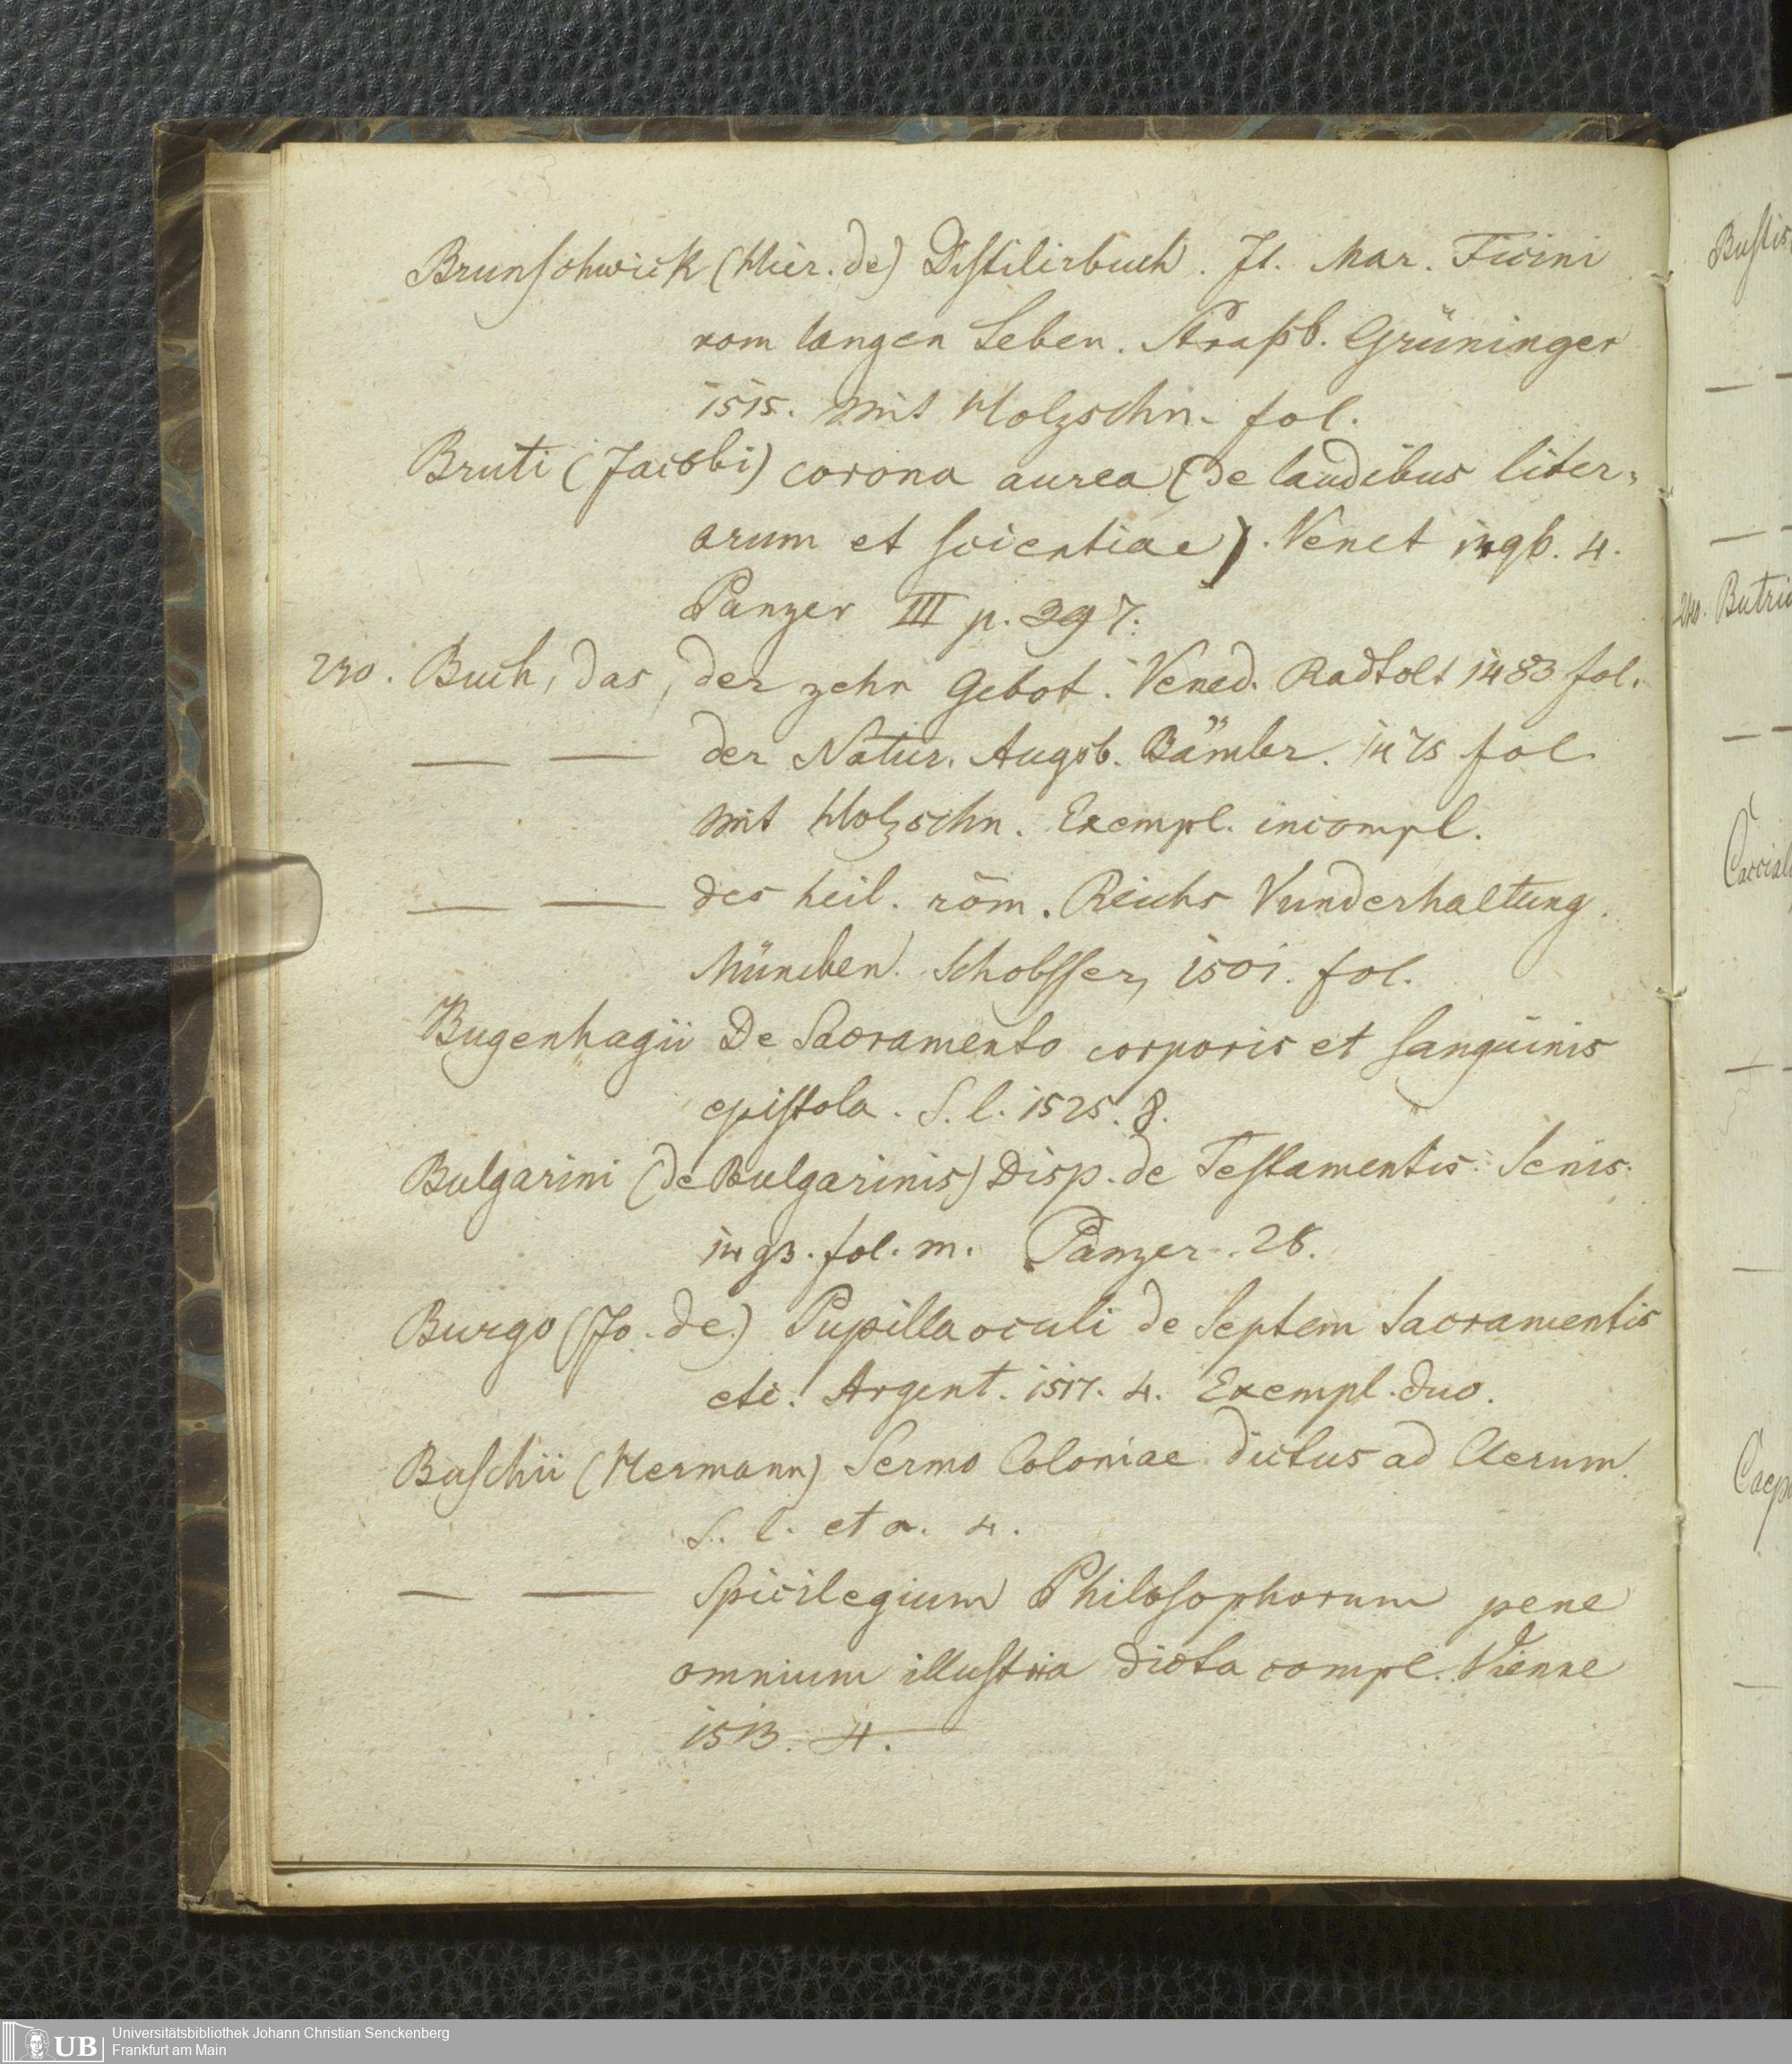 Brunschwick (Hier. de) Distilirbuch. It. Mar. Ficini
vom langen Leben. Straßb. Grüninger
1515. mit Holzschn. fol.
Bruti (Jacobi) corona aurea (de laudibus liter-
arum et scientiae). Venet 1496. 4.
Panzer III p. 397.
230. Buch, das, der zehn Gebot. Vened. Radtolt 1483 fol.
— — der Natur. Augsb. Bämler. 1475 fol
mit Holzschn. Exempl. incompl.
— — des heil. röm. Reichs Vunderhaltung.
München. Schobsser, 1501. fol.
Bugenhagii De Sacramento corporis et sanguinis
epistola. S. l. 1525. 8.
Bulgarini (de Bulgarinis) Disp. de Testamentis. Senis.
1493. fol. m. Panzer. 28.
Burgo (Jo. de) Pupilla oculi de septem Sacramentis
etc. Argent. 1517. 4. Exempl. duo.
Buschii (Hermann) Sermo Coloniae dictus ad Clerum.
S. l. et a. 4.
— — Spicilegium Philosophorum pene
omnium illustria dicta compl. Vienne
1513. 4.
Bustis
240. Butrio
UB
Universitätsbibliothek Johann Christian Senckenberg
Frankfurt am Main